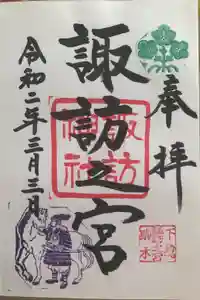 奉拝
諏訪之宮
令和二年三月三日
諏訪神社